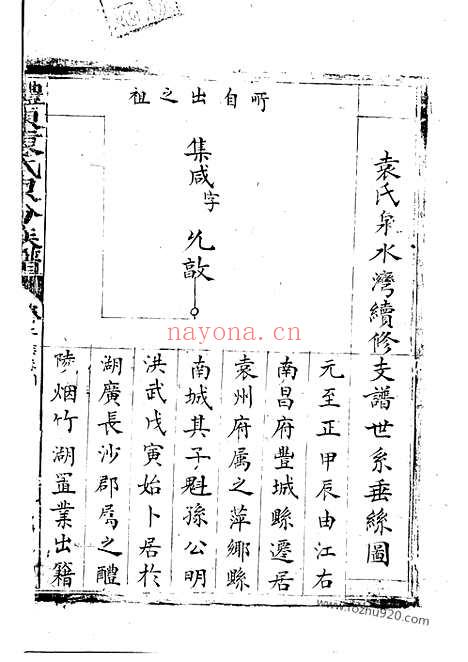 袁氏泉水灣續修支譜世系垂絲圖
所自出之祖
集咸字
允敲
元至正甲辰由江右
南昌府豐城縣遷居
袁州府属之萍鄉縣
南城其子魁孫公明
洪武戊寅始卜居於
湖廣長沙郡属之醴
陵烟竹湖置業出籍
nayona.cn
www.rozhu920.com